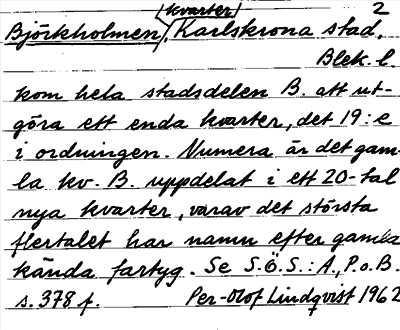 (kvarter) 2
Björkholmen, Karlskrona stad,
Blek. l.
kom hela stadsdelen B. att ut-
göra ett enda kvarter, det 19:e
i ordningen. Numera är det gam-
la kv. B. uppdelat i ett 20-tal
nya kvarter, varav det största
flertalet har namn efter gamla
kända fartyg. Se S.Ö.S.: A., P. o. B.
s. 378 f. Per-Olof Lindqvist 1962